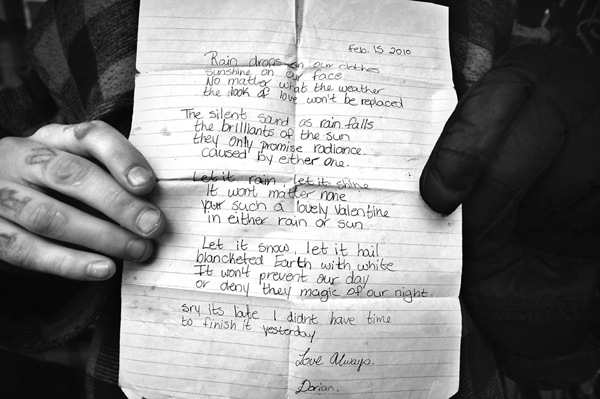 Feb. 15 2010
Rain drops on our clothes
sunshine on our face
No matter what the weather
the look of love won't be replaced
The silent sound as rain falls
the brilliants of the sun
they only promise radiance
caused by either one.
Let it rain, let it shine
It wont matter none
your such a lovely Valentine
in either rain or sun
Let it snow, let it hail
blancketed Earth with white
It won't prevent our day
or deny they magic of our night
sry its late I didnt have time
to finish it yesterday
Love Always.
Dorian.